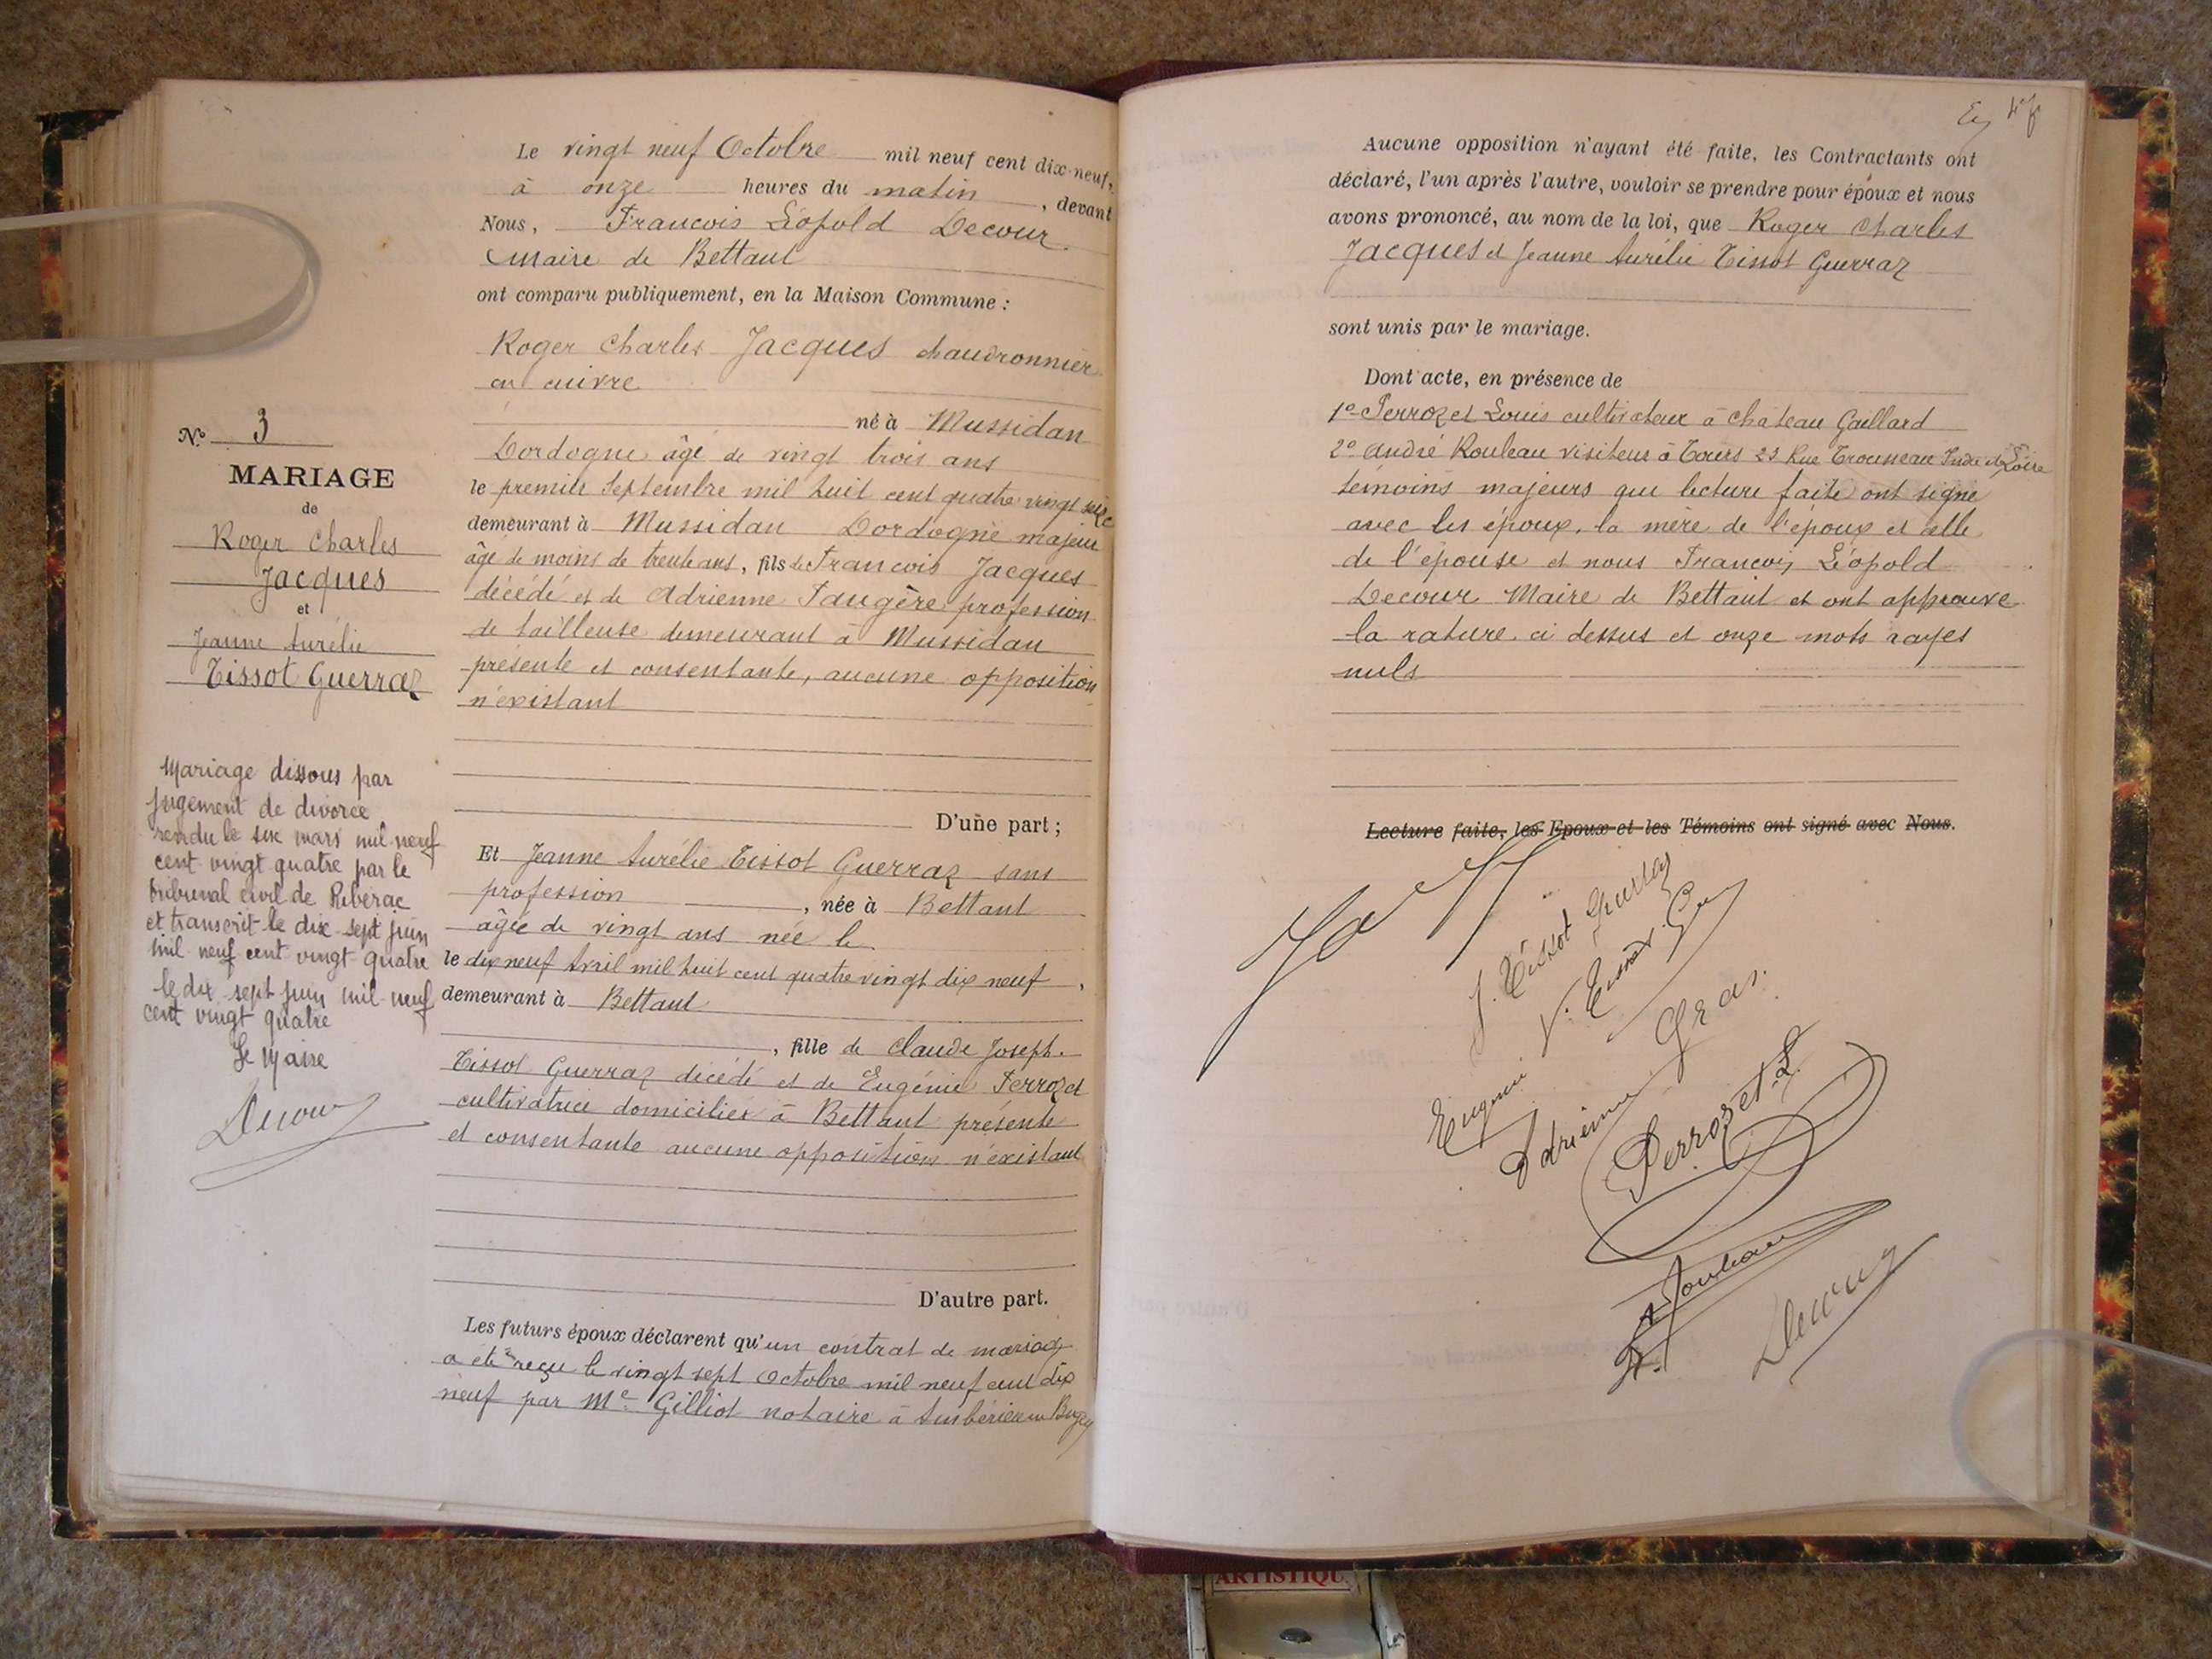 Le vingt neuf Octobre mil neuf cent dix-neuf,
à onze heures du matin, devant
Nous, Francois Léopold Decour
Maire de Bettant
ont comparu publiquement, en la Maison Commune :
Roger Charles Jacques chaudronnier
en cuivre
né à Mussidan
Dordogne âgé de vingt trois ans
le premier Septembre mil huit cent quatre vingt seize
demeurant à Mussidan Dordogne majeur
âgé de moins de trente ans, fils de Francois Jacques
décédé et de Adrienne Faugère profession
de tailleuse demeurant à Mussidan
présente et consentante, aucune opposition
n'existant
D'une part ;
Et Jeanne Aurélie Tissot Guerraz sans
profession, née à Bettant
âgée de vingt ans née le
le dix neuf Avril mil huit cent quatre vingt dix neuf,
demeurant à Bettant
, fille de Claude Joseph
Tissot Guerraz décédé et de Eugénie Perrozet
cultivatrice domiciliée à Bettant présente
et consentante aucune opposition n'existant
D'autre part.
Les futurs époux déclarent qu'un contrat de mariage
a été reçu le vingt sept Octobre mil neuf cent dix
neuf par Me Gilliot notaire à Ambérieu en Bugey
N° 3
MARIAGE
de
Roger Charles
Jacques
et
Jeanne Aurélie
Tissot Guerraz
Mariage dissous par
jugement de divorce
rendu le six mars mil neuf
cent vingt quatre par le
tribunal civil de Ribérac
et transcrit le dix sept juin
mil neuf cent vingt quatre
le dix sept juin mil neuf
cent vingt quatre
Le Maire
Decour
Aucune opposition n'ayant été faite, les Contractants ont
déclaré, l'un après l'autre, vouloir se prendre pour époux et nous
avons prononcé, au nom de la loi, que Roger Charles
Jacques et Jeanne Aurélie Tissot Guerraz
sont unis par le mariage.
Dont acte, en présence de
1° Perrozet Louis cultivateur à Château Gaillard
2° André Rouleau visiteur à Tours 23 Rue Trouneau Indre et Loire
témoins majeurs qui lecture faite ont signé
avec les époux, la mère de l'époux et celle
de l'épouse et nous Francois Léopold
Decour Maire de Bettant et ont approuvé
la rature ci dessus et onze mots rayés
nuls
Lecture faite, les Epoux et les Témoins ont signé avec Nous.
J. Tissot Guerraz
Eugénie
Adrienne Gras
Perrozet L
A Rouleau
Decour
ARTISTIQU